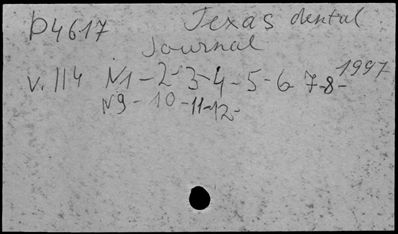 D4617 Texas dental
Journal
V. 114 N1-2-3-4-5-6-7-8- 1997
N9-10-11-12-